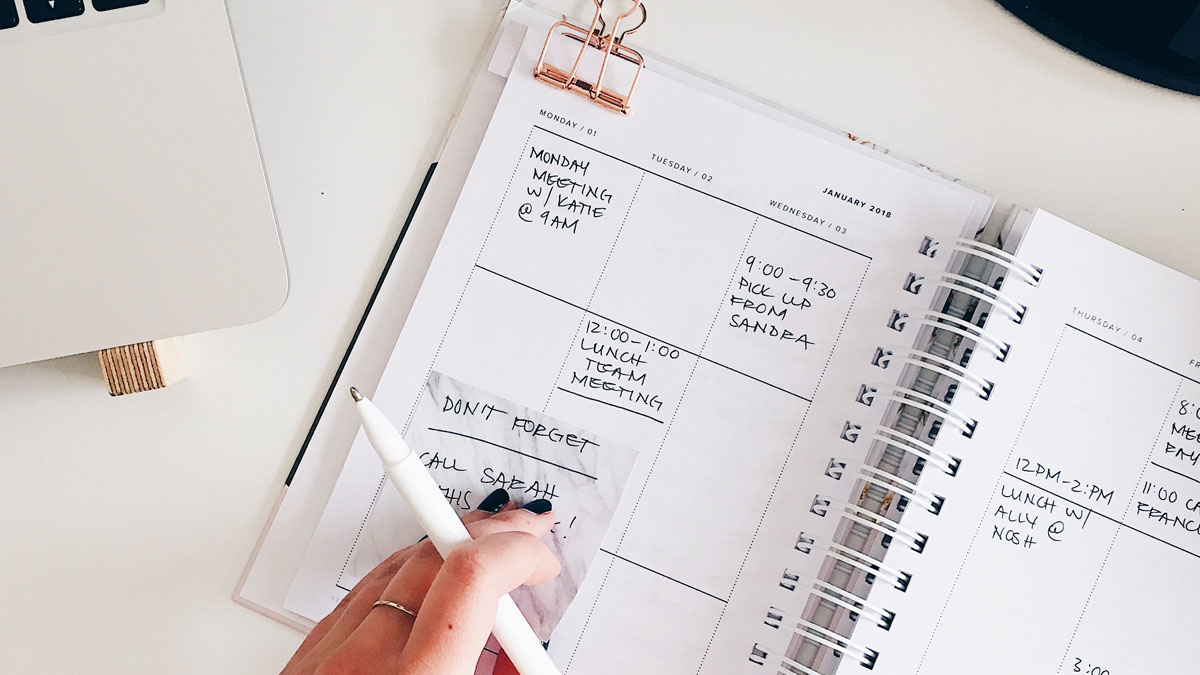 MONDAY / 01
MONDAY
MEETING
W/ KATIE
@ 9AM
TUESDAY / 02
12:00-1:00
LUNCH
TEAM
MEETING
JANUARY 2018
WEDNESDAY / 03
9:00-9:30
PICK UP
FROM
SANDRA
DON'T FORGET
CALL SARAH
THIS
THURSDAY / 04
12PM-2:PM
LUNCH W/
ALLY @
NOSH
11:00
3:00